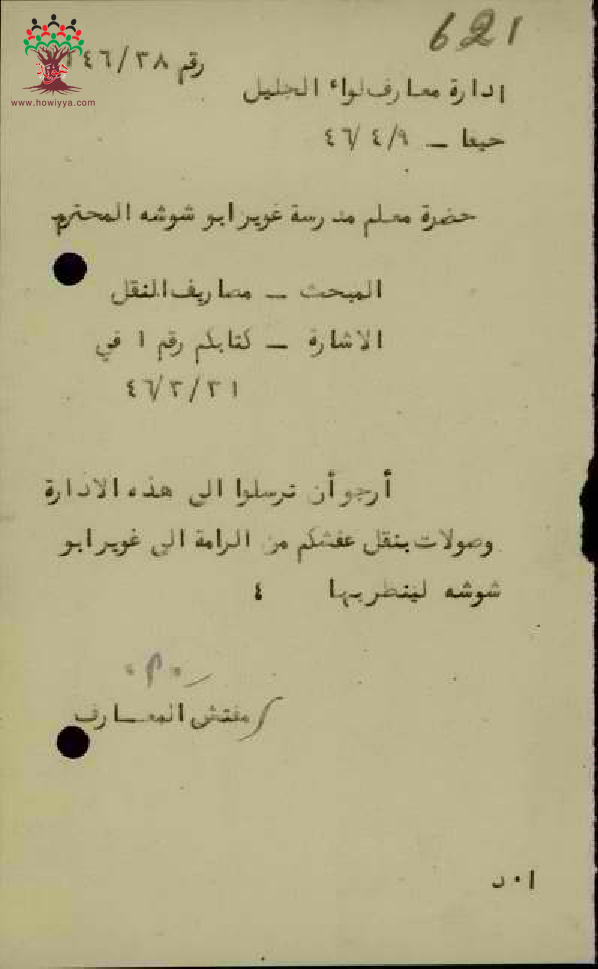 621
www.howiyya.com
رقم ١٤٦/٣٨
إدارة معارف لواء الجليل
حيفا _ ٤٦/٤/٩
حضرة معلم مدرسة غوير ابو شوشه المحترم
المبحث _ مصاريف النقل
الاشارة _ كتابكم رقم ١ في
٤٦/٣/٣١
أرجو أن ترسلوا الى هذه الادارة
وصولات بنقل عفشكم من الرامة الى غوير ابو
شوشه لينظر بها ٤
مفتش المعارف
ا٠د